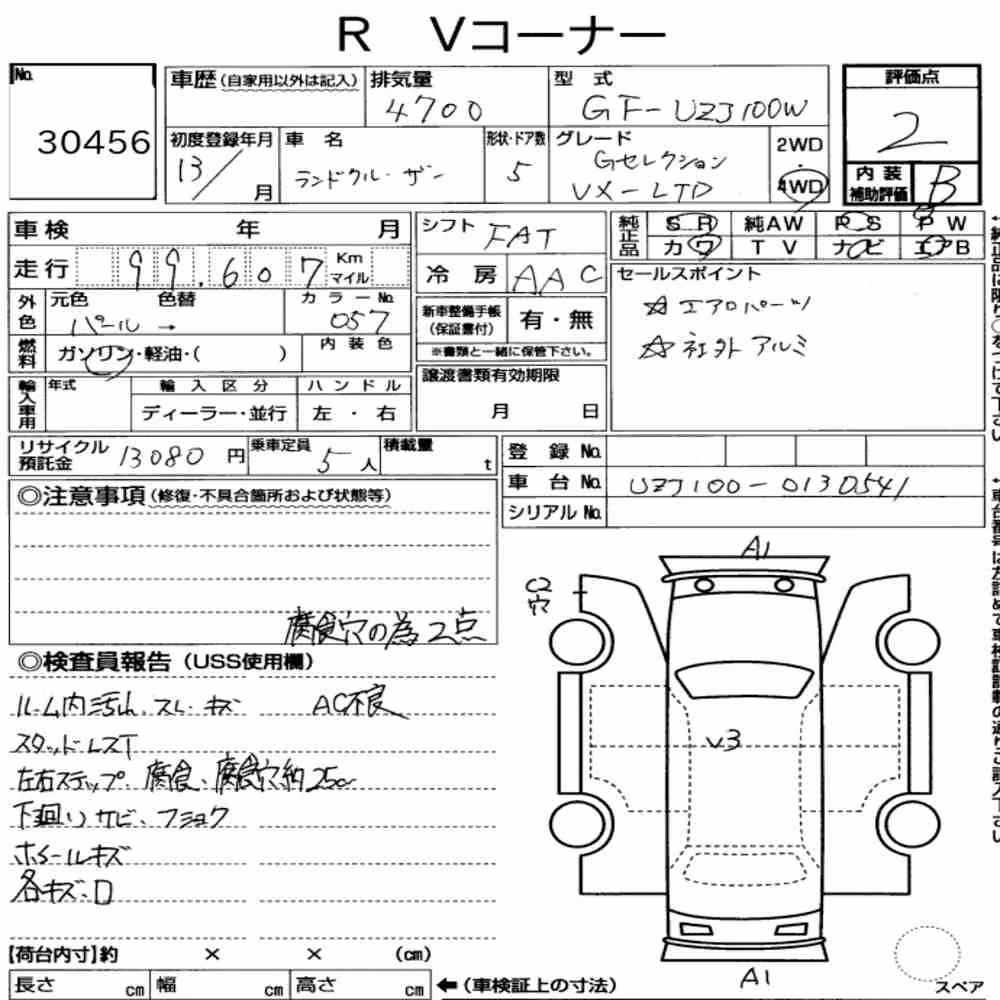 R Vコーナー
No. 30456
車歴(自家用以外は記入) 排気量 4700 型式 GF-UZJ100W
評価点 2
初度登録年月 13/ 月 車名 ランドクル・ザー 形状・ドア数 5 グレード Gセレクション VX-LTD 2WD・4WD
内装補助評価 B
車検 年 月 シフト FAT
走行 99.607 Km マイル 冷房 AAC
純正品 SR 純AW RS PW
カワ TV ナビ エアB
外色 元色 パール → 色替 カラーNo. 057
新車整備手帳(保証書付) 有・無
※書類と一緒に保管下さい。
セールスポイント
☆エアロパーツ
☆社外アルミ
燃料 ガソリン・軽油・( ) 内装色
譲渡書類有効期限 月 日
輸入車用 年式 輸入区分 ハンドル
ディーラー・並行 左・右
リサイクル預託金 13080円 乗車定員 5人 積載量 t
登録No.
車台No. UZJ100-0130541
シリアルNo.
◎注意事項(修復・不具合箇所および状態等)
腐食穴の為2点
◎検査員報告(USS使用欄)
ルーム内汚れ、スレ・キズ AC不良
スタッドレスT
左右ステップ 腐食、腐食穴約25cm
下廻りサビ、フショク
ホイールキズ
各キズ、凹
A1
C2
穴
V3
A1
スペア
【荷台内寸】約 × × (cm)
長さ cm 幅 cm 高さ cm ←(車検証上の寸法)